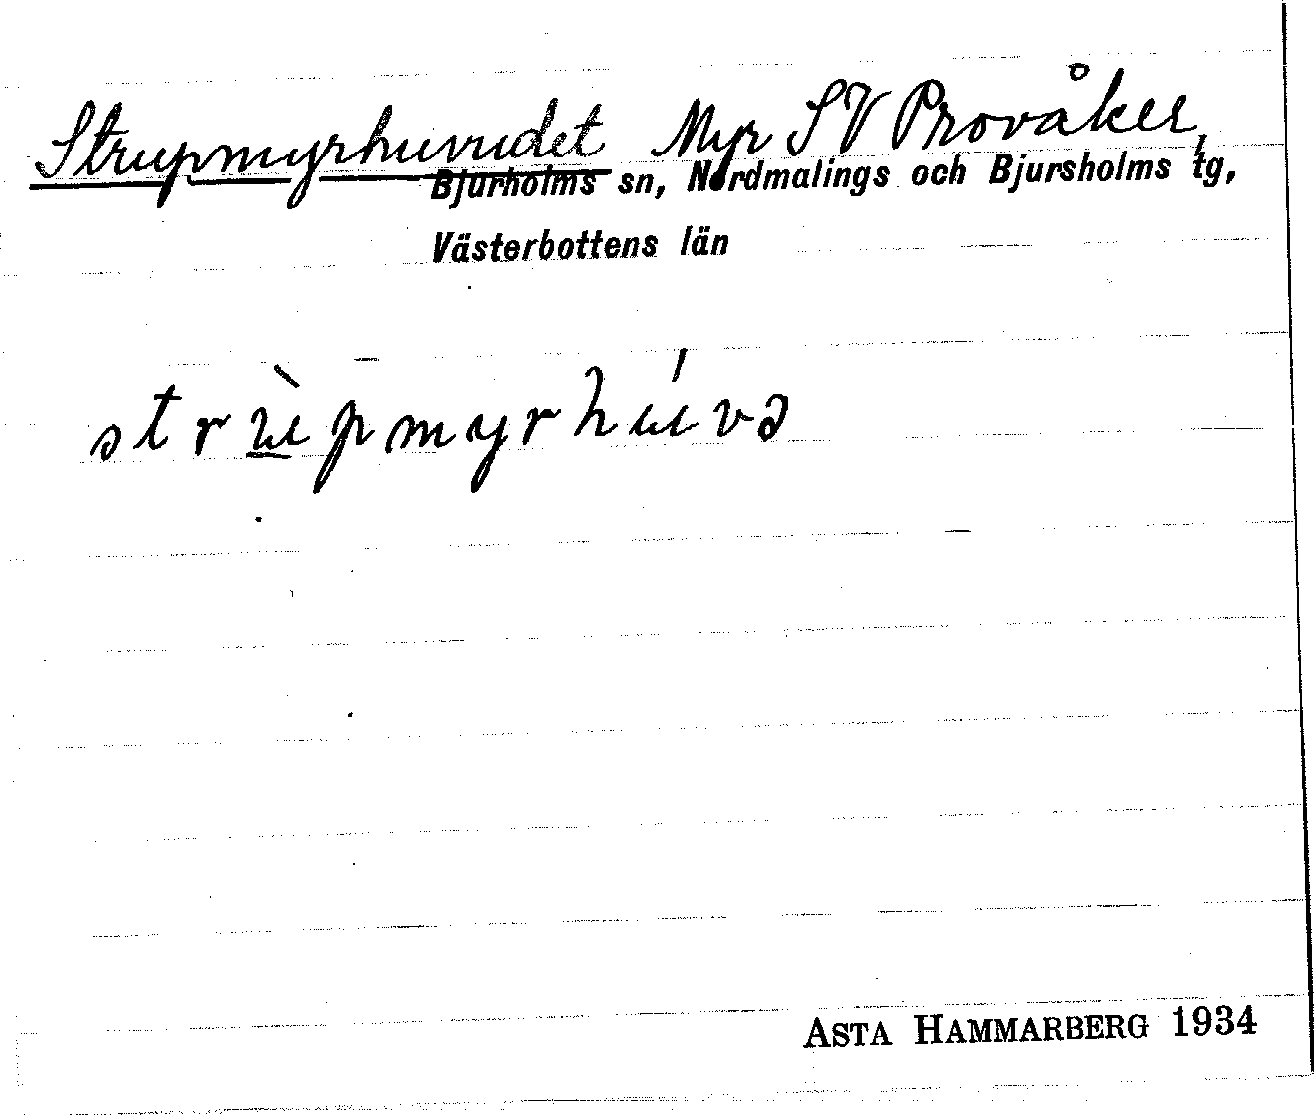 Strupmyrhuvudet Myr SV Provåker,
Bjurholms sn, Nordmalings och Bjursholms tg,
Västerbottens län
strùpmyrhúvə
ASTA HAMMARBERG 1934